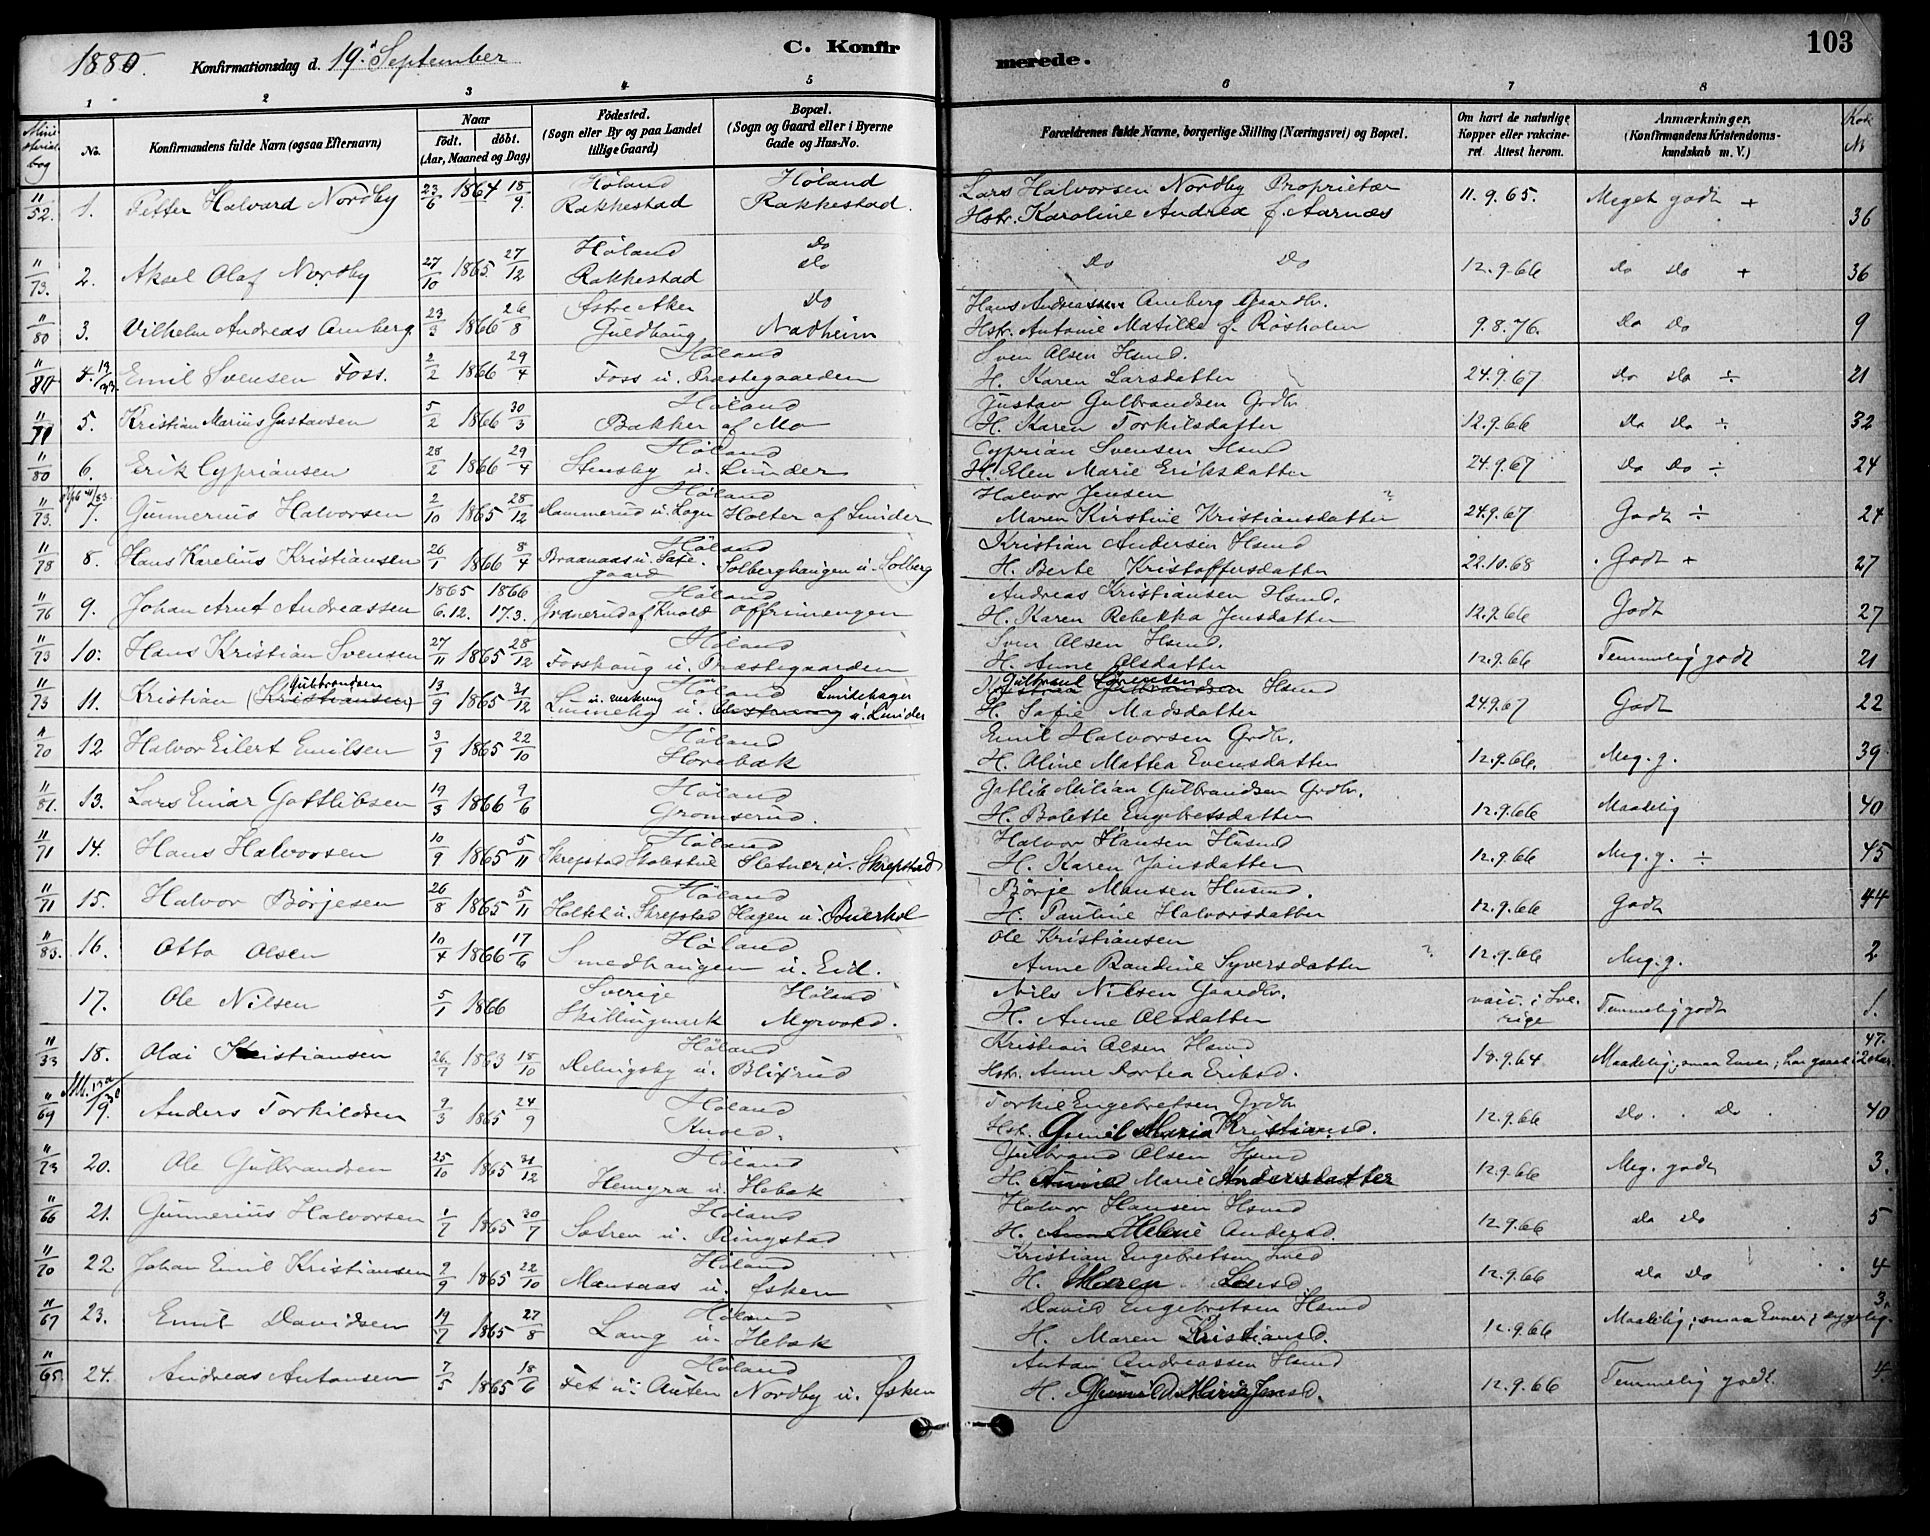 1880. Konfirmationsdag d. 19d September C. Konfirmerede. 103
1 2 3 4 5 6 7 8
Ministerial bog No. Konfirmandens fulde Navn (ogsaa Efternavn) Naar födt. döbt. (Aar, Maaned og Dag) Födested. (Sogn eller By og paa Landet tillige Gaard) Bopæl. (Sogn og Gaard eller i Byerne Gade og Hus-No. Forældrenes fulde Navne, borgerlige Stilling (Næringsvei) og Bopæl. Om havt de naturlige Kopper eller vakcineret. Attest herom. Anmærkninger. (Konfirmandens Kristendomskundskab m. V.)
11/52. 1. Petter Halvard Nordby 23/6 1864 18/9. Høland Rakkestad Høland Rakkestad. Lars Halvorsen Nordby Proprietær Hstr. Karoline Andrea f. Aarnæs 11.9.65. Meget godt + 36
11/73. 2. Aksel Olaf Nordby 27/10 1865. 27/12 Høland Rakkestad Do Do Do Do 12.9.66 Do Do + 36
11/80 3. Vilhelm Andreas Amberg 23/3 1866 26/8 Østre Aker Guldhaug Do Nadheim Hans Andreassen Amberg Gaardbr. Hstr. Antonie Matilde f. Rosholm 9.8.76. Do Do 9
11/80 4. Emil Svensen Foss. 2/2 1866 29/4 Høland Foss u. Præstegaarden Sven Olsen Hsmd. H. Karen Larsdatter 24.9.67 Do Do ÷ 21
11/79 5. Kristian Marius Gustavsen 5/2 1866 30/3 Høland Bakker af Mo Gustav Gulbrandsen Grdbr H. Karen Torkilsdatter 12.9.66 Do Do ÷ 32
11/80 6. Erik Cypriansen 28/2 1866 29/4 Høland Stensby u. Lunder Cyprian Svensen Hsmd H. Elen Marie Eriksdatter 24.9.67 Do Do ÷ 24
11/73. 7. Gunnerius Halvorsen 2/10 1865 28/12 Høland Hammerud u. Loger Holter af Lunder Halvor Jensen Maren Kirstine Kristiansdatter 24.9.67 Godt ÷ 24
11/78 8. Hans Karelius Kristiansen 26/1 1866 8/4 Høland Braanaas u. Søfegaard Solberghaugen u. Solberg Kristian Andersen Hsmd H. Berte Kristoffersdatter 22.10.68 Godt + 27
11/76 9. Johan Arnt Andreassen 1865 6.12. 1866 17.3. Høland Grønerud af Kvold Offrimengen Andreas Kristiansen Hsmd. H. Karen Rebekka Jensdatter 12.9.66 Godt 27
11/73 10. Hans Kristian Svensen 27/11 1865 28/12 Høland Fosshaug u. Præstegaarden Sven Olsen Hsmd. H. Anne Olsdatter 12.9.66 Temmelig godt 21
11/73 11. Kristian (Kristiansen) Gulbrandsen 13/9 1865 31/12 Høland Lundehagen u. Lunder Gulbrand Sørensen Gulbrandsen Hsmd H. Sofie Madsdatter 24.9.67 Godt 22
11/70 12 Halvor Eilert Emilsen 3/9 1865 22/10 Høland Horebæk Emil Halvorsen Grdbr. H. Oline Mattea Evensdatter 12.9.66. Meg. g. 39
11/81. 13. Lars Einar Gottlibsen 19/3 1866 9/6 Høland Gromserud. Gotlib Milian Gulbrandsen Grdbr. H. Bolette Engebretsdatter 12.9.66 Maadelig 40
11/71 14. Hans Halvorsen 10/9 1865 5/11 Høland Skrepstad Skolestue Sletner u. Skrepstad Halvor Hansen Husmd H. Karen Jensdatter 12.9.66 Meg. g. ÷ 45
11/71 15. Halvor Børjesen 26/8 1865 5/11 Høland Holtet u. Skrepstad Hagen u. Buerhol Børje Monsen Husmd. H. Pauline Halvorsdatter 12.9.66 Godt 44
11/83. 16. Otto Olsen 10/4 1866 17/6 Høland Smedhaugen u. Eid. Ole Kristiansen Anne Randine Syversdatter 12.9.66 Meg. g. 2
17. Ole Nilsen 5/1 1866 Sverige Skillingmark Høland Myrvold. Nils Nilsen Gaardbr. H. Anne Olsdatter vacc. i Sverige Temmelig godt 1.
11/33 18. Olai Kristiansen 26/7 1863 18/10 Høland Helingsby u. Blixrud Kristian Olsen Hsmd Hstr. Anne Dortea Eriksd. 18.9.64 Maadelig; smaa Evner; har gaaet i 2 Aar. 47.
11/69 19. Anders Torkildsen 9/3 1865 24/9 Høland Kvold. Torkil Engebretsen Grdbr Hstr. Gunil Maria Kristiansd. 12.9.66 Do. Do 40
11/73 20. Ole Gulbrandsen 25/10 1865 31/12 Høland Hemyra u. Hebæk Gulbrand Olsen Hsmd H. Anne Marie Andersdatter 12.9.66 Meg. godt 3.
11/66 21. Gunnerius Halvorsen 1/7 1865 30/7 Høland Sotren u. Ringstad Halvor Hansen Hsmd H. Helene Andersd. 12.9.66 Do Do 5
11/70 22 Johan Emil Kristiansen 9/9 1865 22/10 Høland Mænsaas u. Øsken Kristian Engebretsen Smed H. Maren Larsd 12.9.66 Do Do 4
11/67 23. Emil Davidsen 19/7 1865 27/8 Høland Lang u. Hebæk David Engebretsen Hsmd H. Maren Kristiansd. 12.9.66 Maadelig; smaa Evner; sygelig. 3.
11/65. 24. Andreas Antonsen 7/5 1865 18/6 Høland Fet u. Auten Nordby u. Øsken Anton Andreassen Hsmd H. Gunild Marie Jensd. 12.9.66 Temmelig godt. 4.